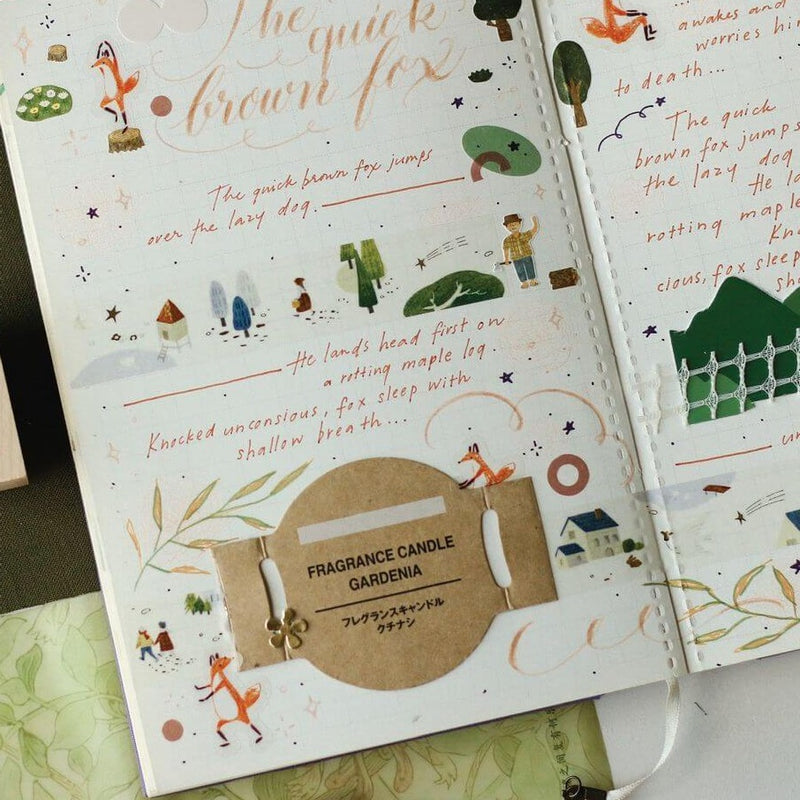 The
quick
brown fox
The quick brown fox jumps
over the lazy dog.
He lands head first on
a rotting maple log.
Knocked unconsious, fox sleep with
shallow breath...
FRAGRANCE CANDLE
GARDENIA
フレグランスキャンドル
クチナシ
...
awakes and
worries hi
to death...
The quick
brown fox jumps
the lazy dog
He la
rotting maple
Kno
cious, fox sleep
sha
un